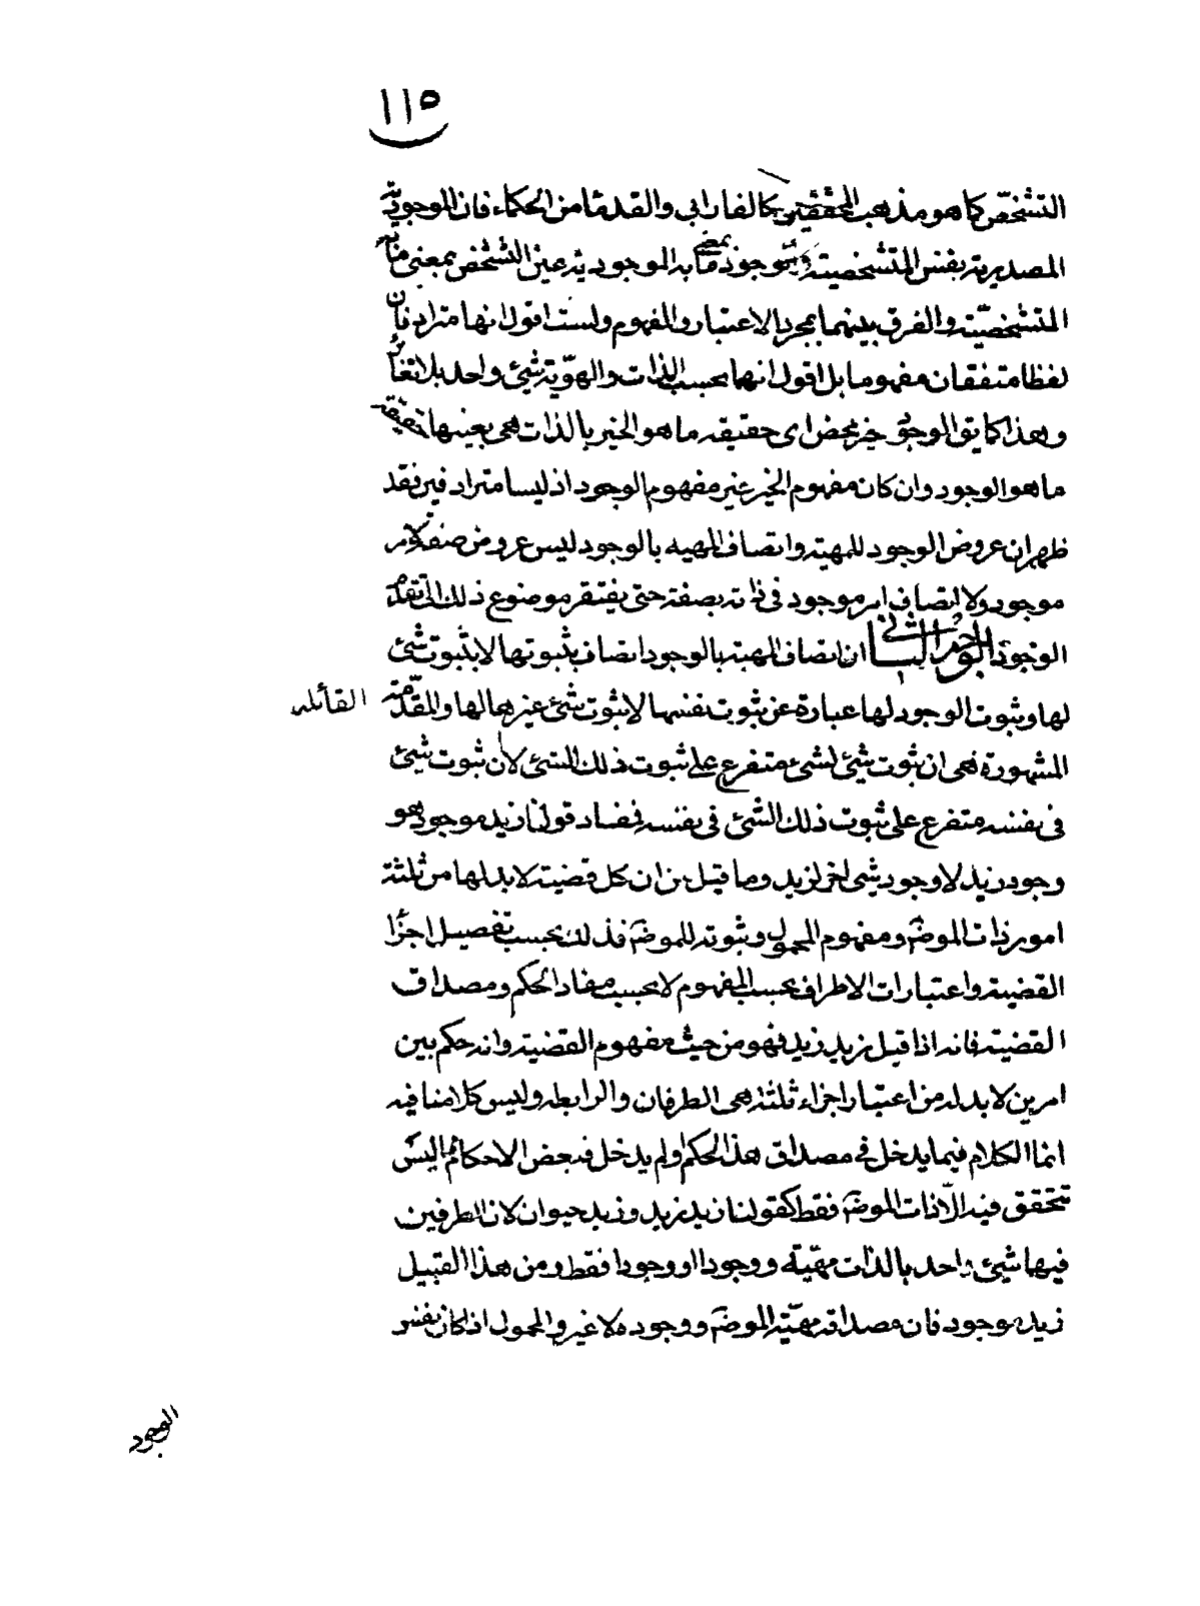 ١١٥
التشخص كما هو مذهب المحققين كالفارابى والقدما من الحكماء فان الموجودية
المصدرية بنفس المتشخصية والموجود بمعنى ما به الموجودية عين التشخص بمعنى ما به
المتشخصية والفرق بينهما بمجرد الاعتبار والمفهوم ولست اقول انهما مترادفان
لفظا متفقان مفهوما بل اقول انهما بحسب الذات والهوية شئ واحد بلا تغاير
وهذا كما يق الوجود خير محض اى حقيقه ما هو الخير بالذات هى بعينها حقيقه
ما هو الوجود وان كان مفهوم الخير غير مفهوم الوجود اذ ليسا مترادفين فقد
ظهر ان عروض الوجود للمهية واتصاف المهيه بالوجود ليس عروض صفة لامر
موجود ولا اتصاف امر موجود فى ذاته بصفة حتى يفتقر موضوع ذلك الى تقدم
الوجود الوجه الثانى ان اتصاف المهية بالوجود اتصاف بثبوتها لا بثبوت شئ
لها وثبوت الوجود لها عبارة عن ثبوت نفسها لا ثبوت شئ غيرها لها والمقدمة القائله
المشهورة هى ان ثبوت شئ لشئ متفرع على ثبوت ذلك الشئ لان ثبوت شئ
فى نفسه متفرع على ثبوت ذلك الشئ فى نفسه فمفاد قولنا زيد موجود هو
وجود زيد لا وجود شئ اخر لزيد وما قيل من ان كل قضية لا بد لها من ثلثة
امور ذات الموضوع ومفهوم المحمول وثبوته للموضوع فذلك بحسب تفصيل اجزا
القضية واعتبارات الاطراف بحسب المفهوم لا بحسب مفاد الحكم ومصداق
القضية فانه اذا قيل زيد زيد فهو من حيث مفهوم القضية وانه حكم بين
امرين لا بد له من اعتبار اجزاء ثلثة هى الطرفان والرابطه وليس كلامنا فيه
انما الكلام فيما يدخل فى مصداق هذا الحكم او لم يدخل فبعض الاحكام مما ليس
تتحقق فيه الا ذات الموضوع فقط كقولنا زيد زيد وزيد حيوان لان الطرفين
فيها شئ واحد بالذات مهية ووجودا او وجودا فقط ومن هذا القبيل
زيد موجود فان مصداقه مهية الموضوع ووجوده لا غير والمحمول اذا كان نفس
الوجود